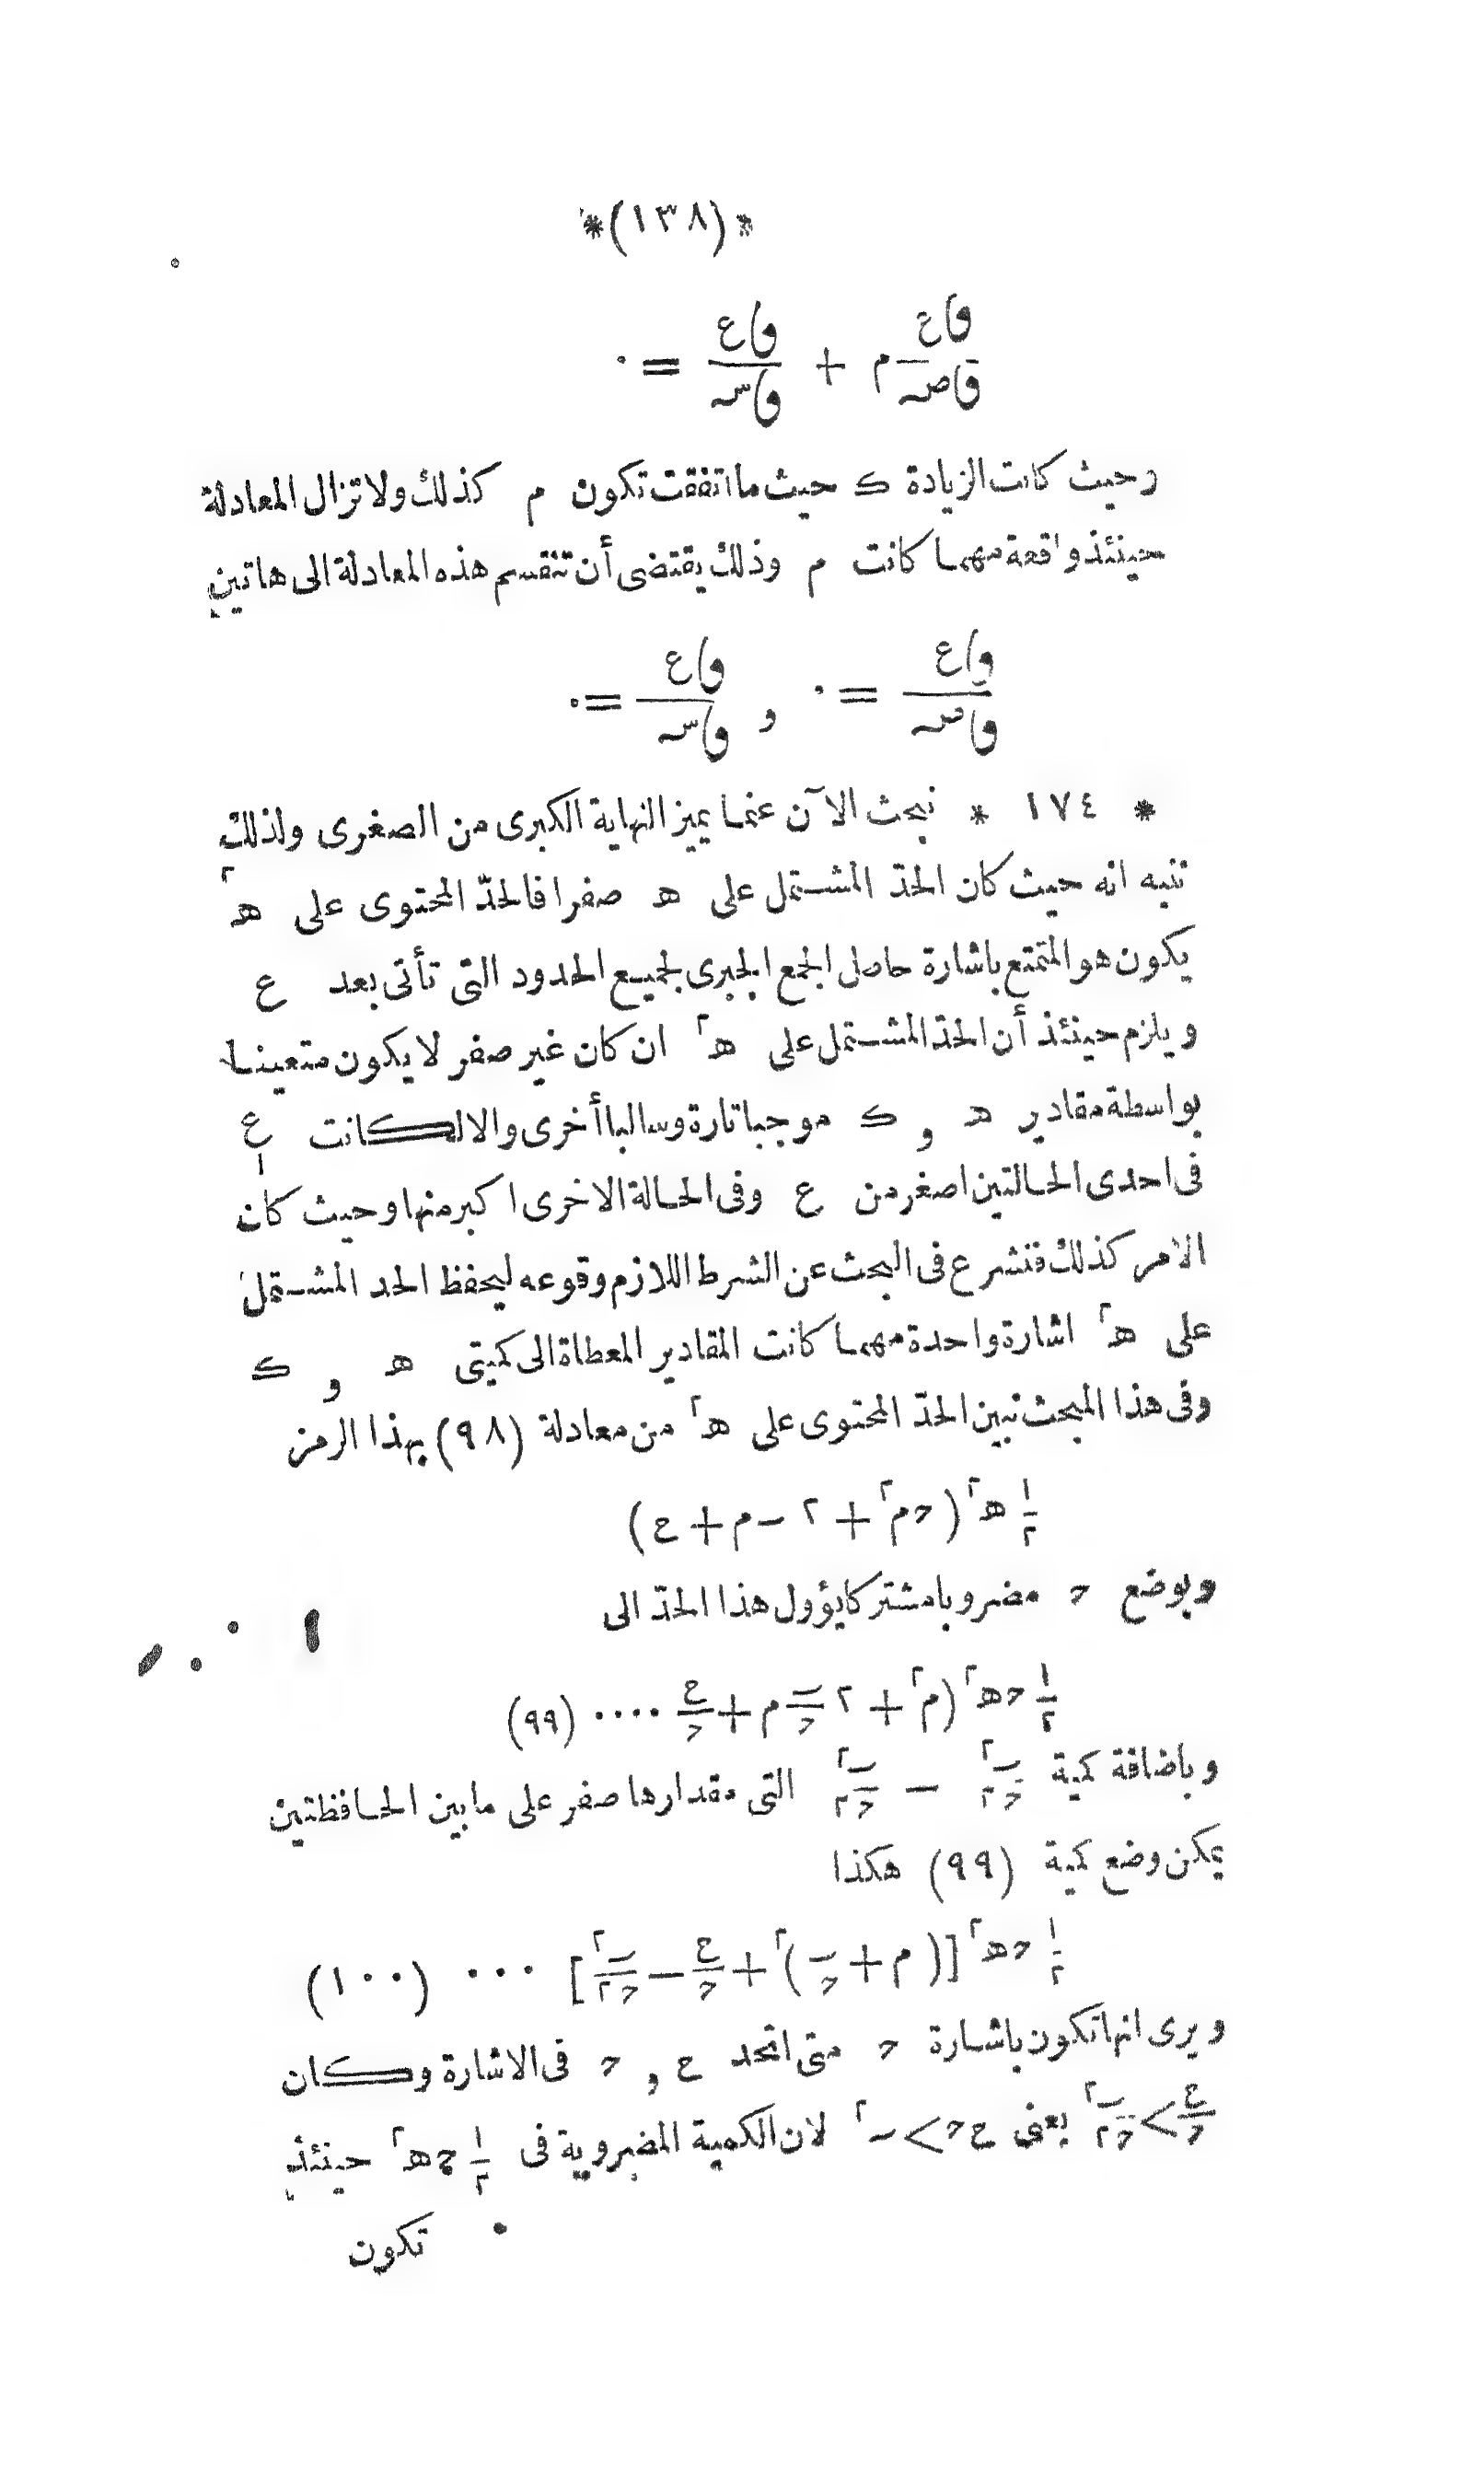 *(١٣٨)*
فاع/فاصہ م + فاع/فاسہ = ٠
وحيث كانت الزيادة ك حيث ما اتفقت تكون م كذلك ولا تزال المعادلة
حينئذ واقعة مهما كانت م وذلك يقتضى أن تنقسم هذه المعادلة الى هاتين
فاع/فاصہ = ٠ و فاع/فاسہ = ٠
* ١٧٤ * نبحث الآن عنما يميز النهاية الكبرى من الصغرى ولذلك
ننبه انه حيث كان الحدّ المشـتمل على ه صفرا فالحدّ المحتوى على ه٢
يكون هو المتمتع باشارة حاصل الجمع الجبرى لجميـع الحدود التى تأتى بعد ع
ويلزم حينئذ أن الحدّ المشـتمل على ه٢ ان كان غير صفر لا يكون متعينـا
بواسطة مقادير ه و ك موجبا تارة وسالبا أخرى والا لكانت ع١
فى احدى الحـالتين اصغر من ع وفى الحـالة الاخرى اكبر منها وحيث كان
الامر كذلك فنشرع فى البحث عن الشرط اللازم وقوعه ليحفظ الحد المشـتمل
على ه٢ اشارة واحدة مهمـا كانت المقادير المعطاة الى كميتى ه و ك
وفى هذا المبحث نبين الحدّ المحتوى على ه٢ من معادلة (٩٨) بهذا الرمز
١/٢ ه٢ (حم٢ + ٢ ںم + ع)
وبوضع ح مضروبا مشتركا يؤول هذا الحدّ الى
١/٢ حه٢ (م٢ + ٢ ں/ح م + ع/ح ···· (٩٩)
وباضافة كمية ں٢/ح٢ − ں٢/ح٢ التى مقدارها صفر على ما بين الحـافظتين
يمكن وضع كمية (٩٩) هكذا
١/٢ حه٢ [(م + ں/ح)٢ + ع/ح − ں٢/ح٢] ··· (١٠٠)
ويرى انها تكون باشـارة ح متى اتحد ع و ح فى الاشارة وكان
ع/ح > ں٢/ح٢ يعنى ع ح > ں٢ لان الكمية المضروبة فى ١/٢ حه٢ حينئذ
تكون